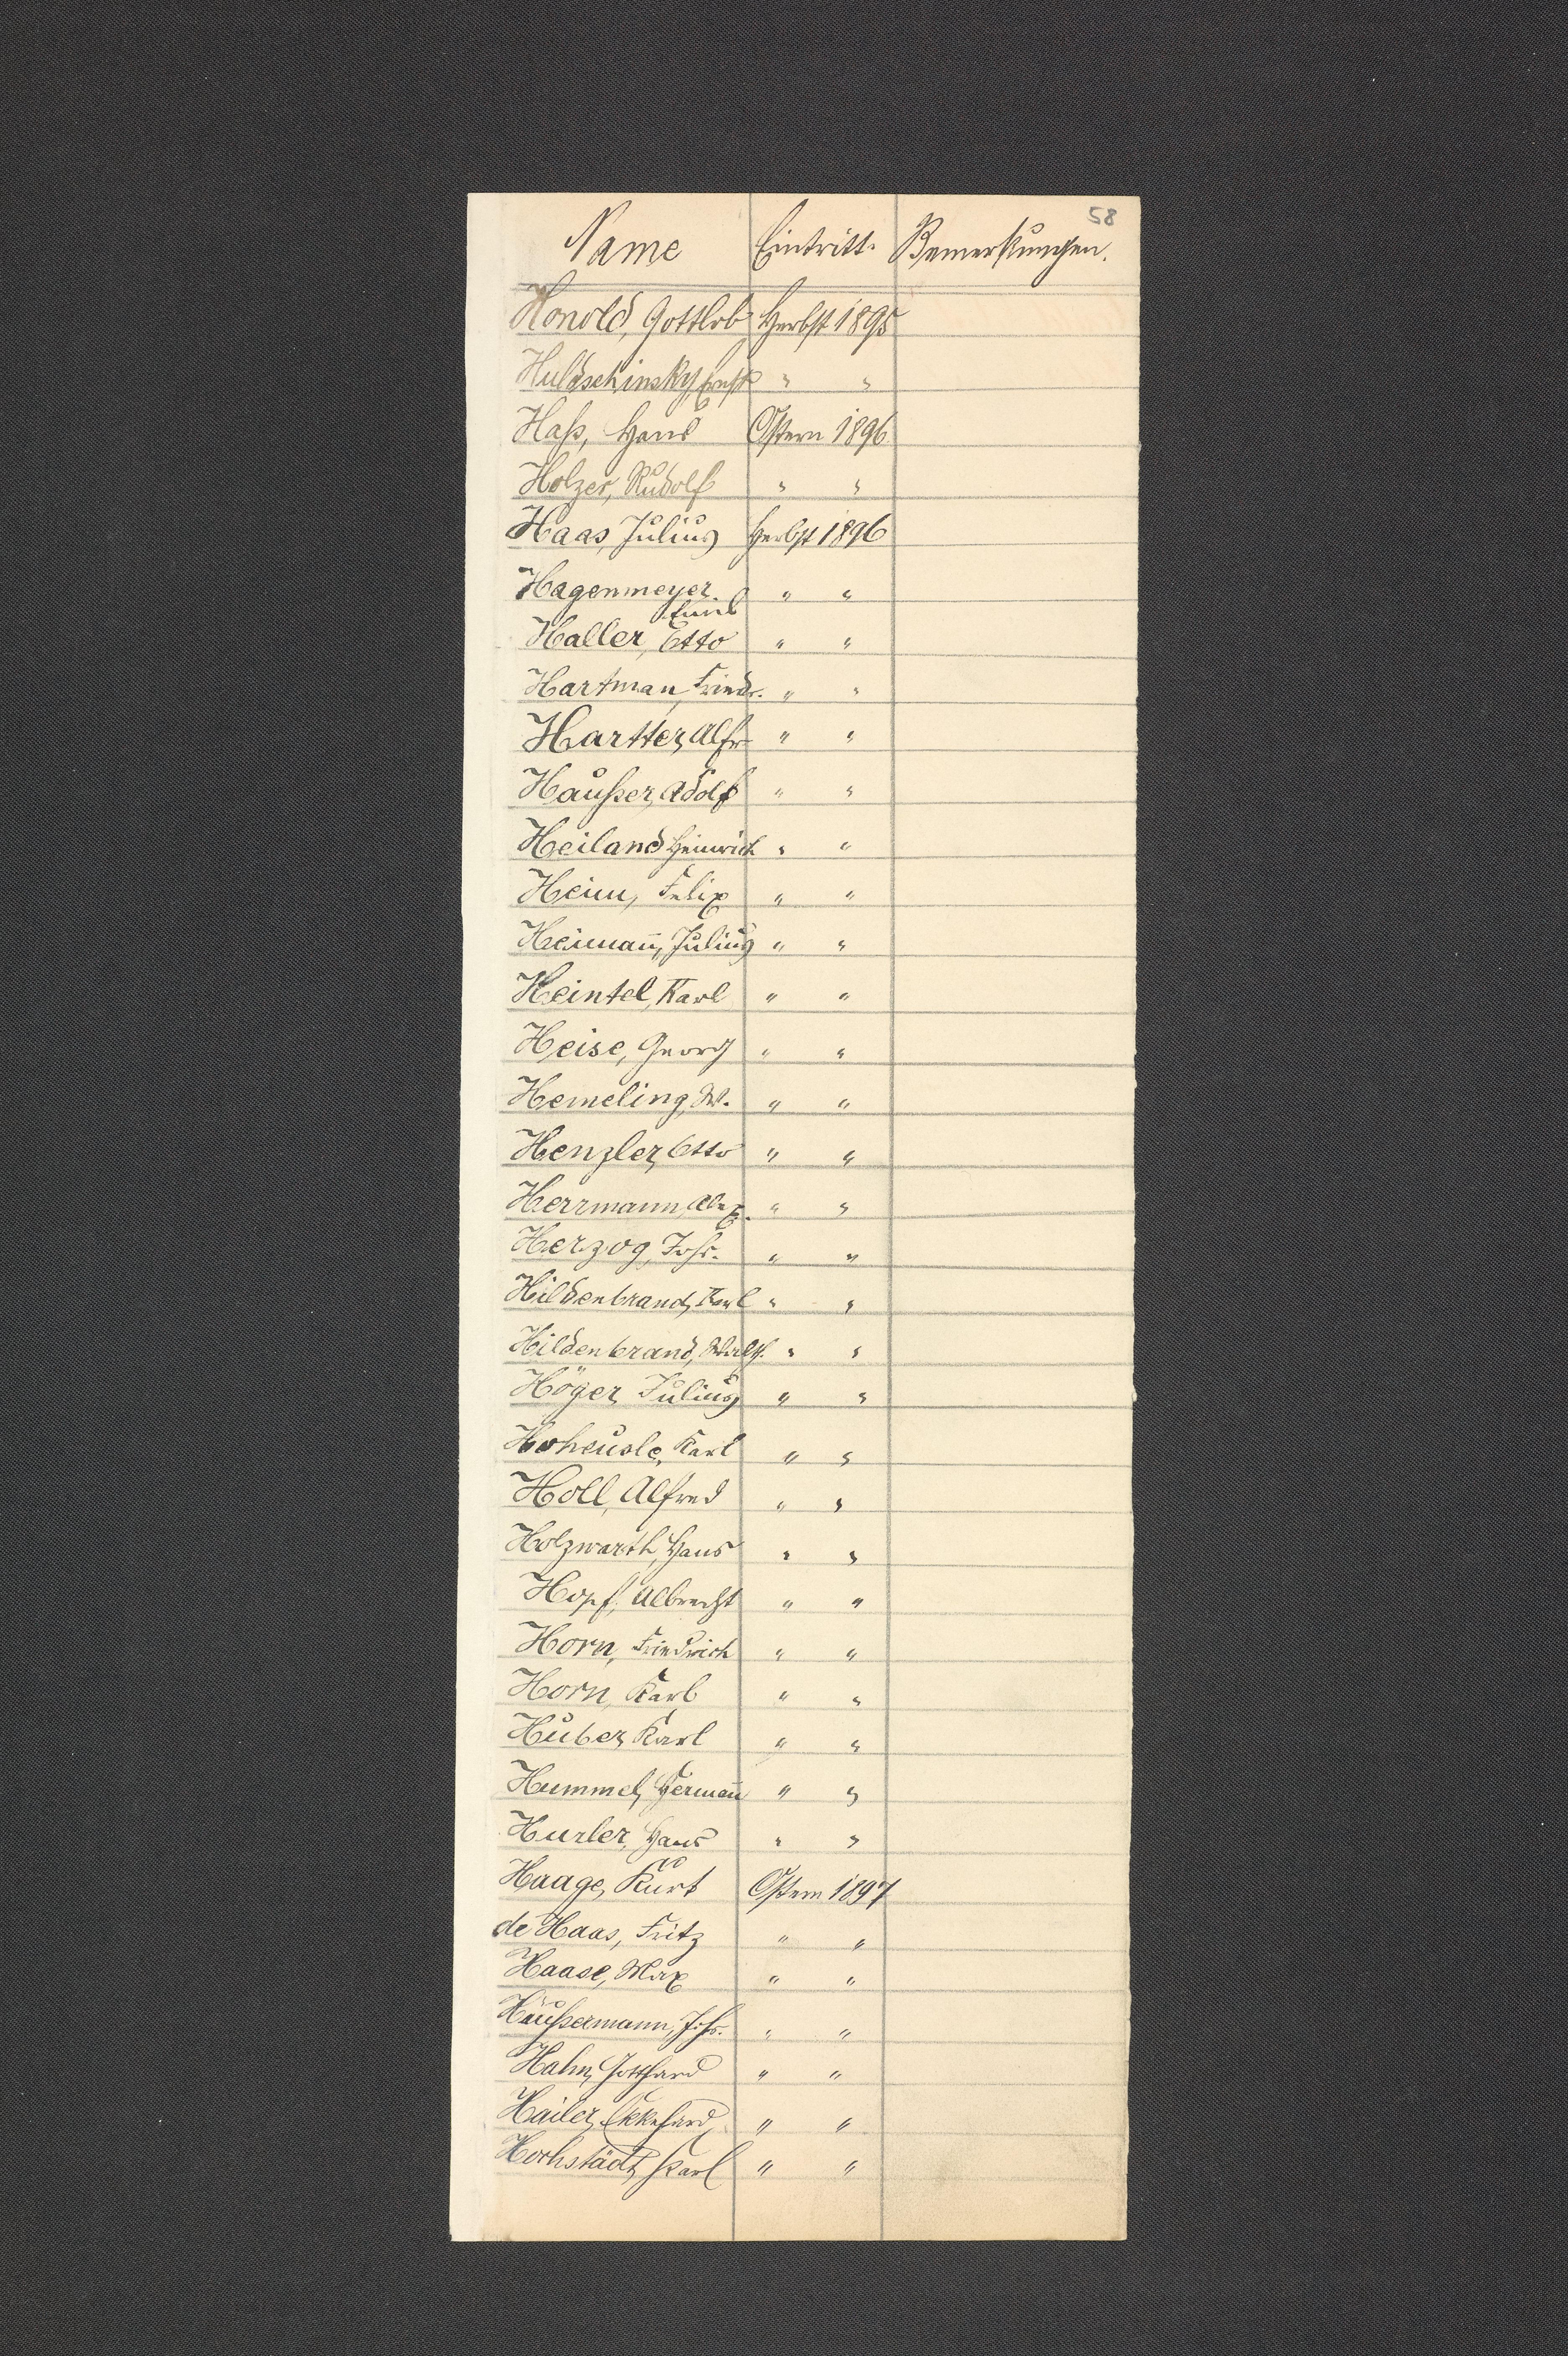 58
Name Eintritt. Bemerkungen.
Honold, Gottlob Herbst 1895
Huldschinsky, Ernst " "
Haß, Hans Ostern 1896
Holzer, Rudolf " "
Haas, Julius Herbst 1896
Hagenmeyer, " "
Emil
Haller, Otto " "
Hartman, Friedr. " "
Hartter, Alfr. " "
Haußer, Adolf " "
Heiland Heinrich " "
Heim, Felix " "
Heimañ, Julius " "
Heintel, Karl " "
Heise, Georg " "
Hemeling, W. " "
Henzler, Otto " "
Herrmann, Alex. " "
Herzog, Johs. " "
Hildenbrand, Karl " "
Hildenbrand, Walth. " "
Höger, Julius " "
Hoheusle, Karl " "
Holl, Alfred " "
Holzwarth, Hans " "
Hopf, Albrecht " "
Horn, Friedrich " "
Horn, Karl " "
Huber, Karl " "
Hummel, Hermañ " "
Hurler, Hans " "
Haage, Kurt Ostern 1897
de Haas, Fritz " "
Haase, Max " "
Häußermann, Johs. " "
Hahn, Gotthard " "
Hailer, Ekkehard, " "
Hochstädt, Karl " "